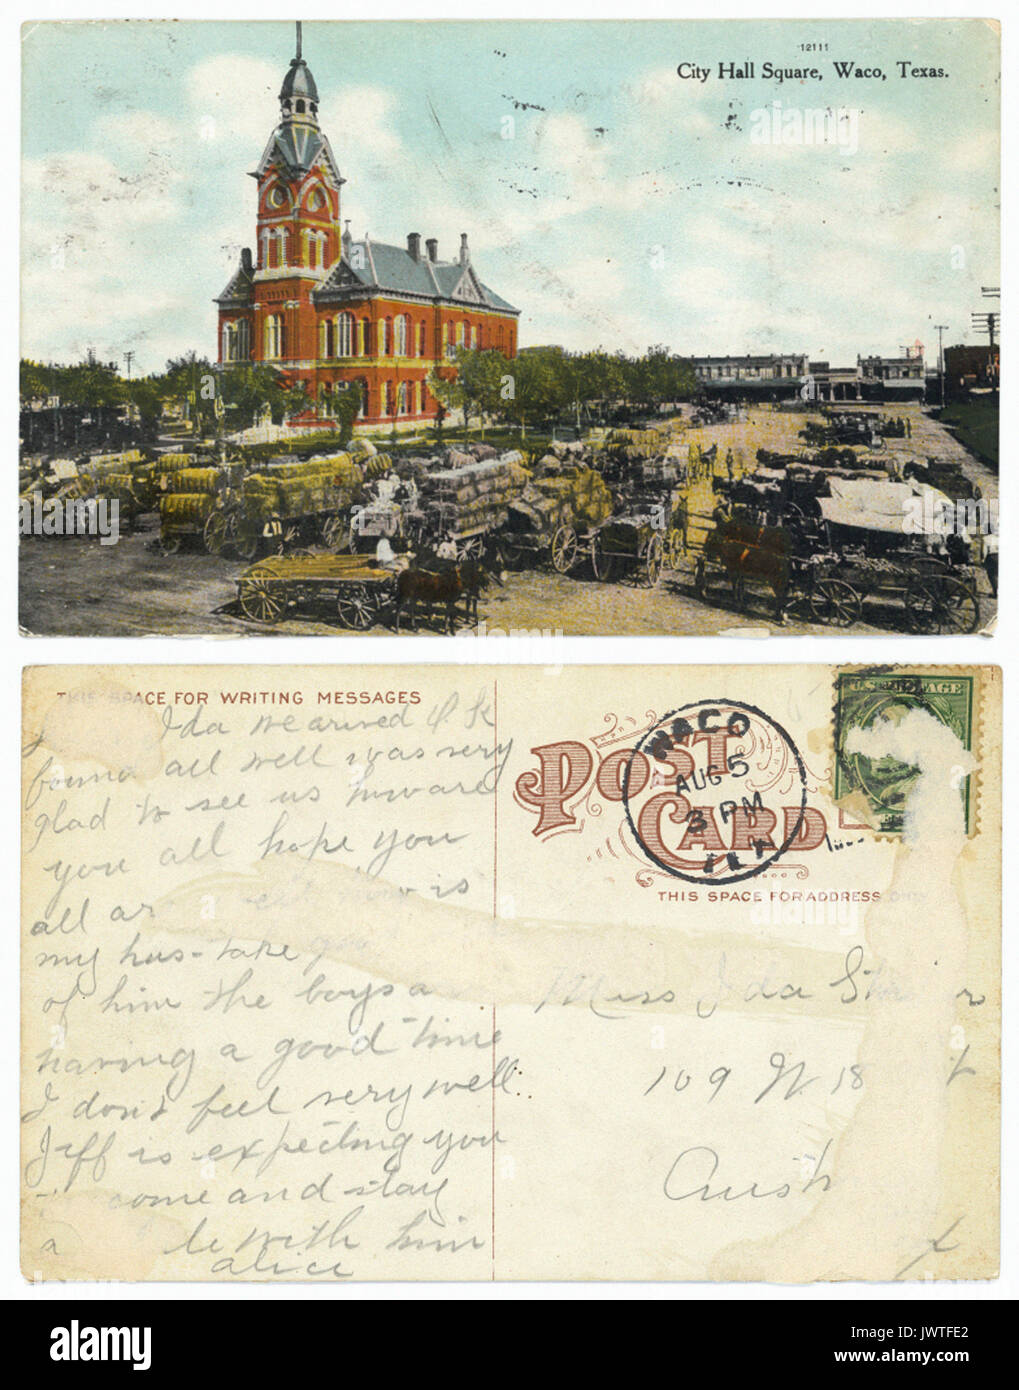 12111
City Hall Square, Waco, Texas.
THIS SPACE FOR WRITING MESSAGES
Ida we arived O.K
found all well was very
glad to see us
you all hope you
all is
my hus- take
of him the boys a
having a good time
I don't feel very well
Jeff is expecting you
come and stay
a with him
alice
POST CARD
WACO
AUG 5
3 PM
TEX
U.S. POSTAGE
THIS SPACE FOR ADDRESS ONLY
Miss Ida
109 W. 18
alamy
Image ID: JWTFE2
www.alamy.com